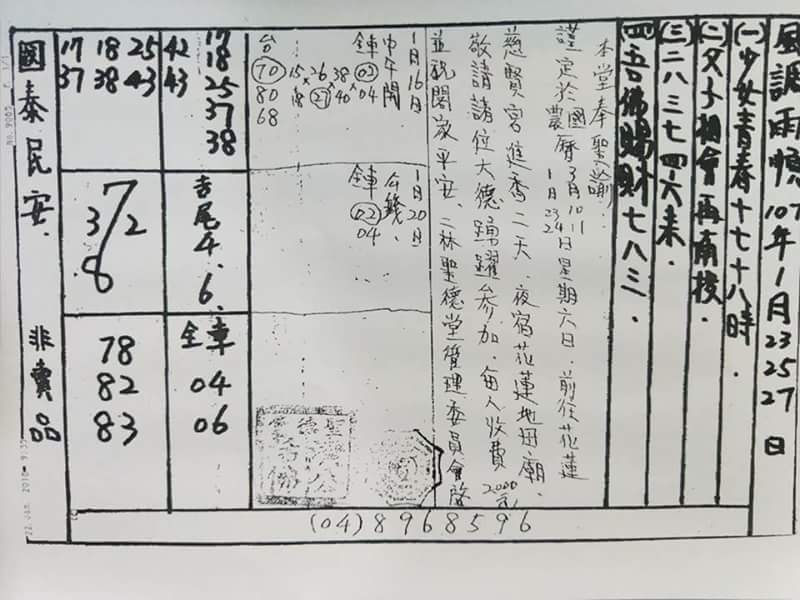 風調雨順 107年1月23 25 27日
(一)少女青春十七十八時.
(二)父子相會再南投.
(三)二八三七四六來.
(四)吾佛賜財七八三.
本堂奉聖諭
謹定於國曆3月10-11日星期六日.前往花蓮
農曆1月23 24
慈賢宮進香二天.夜宿花蓮地母廟.
敬請諸位大德踴躍參加.每人收費2000元
並祝闔家平安.二林聖德堂管理委員會啟
1月16日
中午開
全車 02 04
38 40
26 27
15 18
台 70 80 68
1月20日
全車 02 04
17
18
25
37
38
42
43
吉尾4.6.
全車
04
06
17 18 25
37 38 43
3 7 2
8
78
82
83
國泰民安.
非賣品
(04)8968596